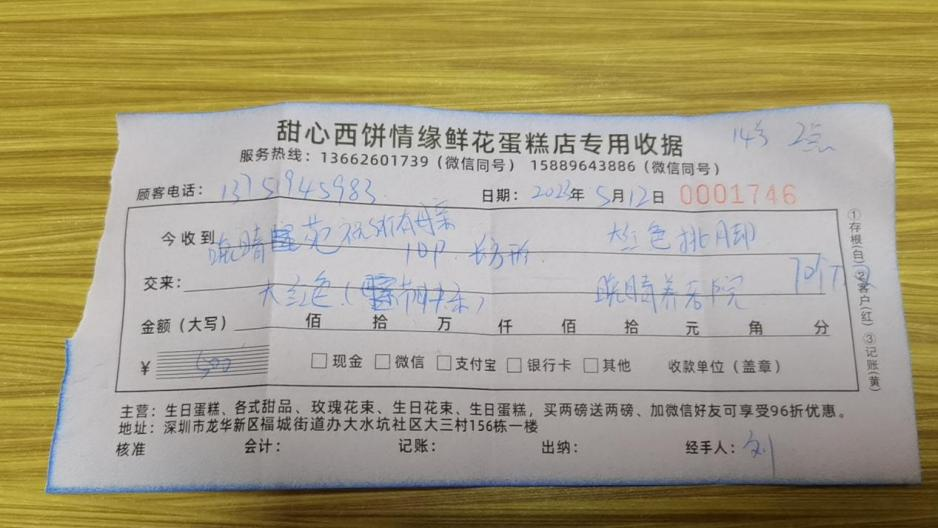 甜心西饼情缘鲜花蛋糕店专用收据
14号 2点
服务热线：13662601739（微信同号） 15889643886（微信同号）
顾客电话：13751945983 日期：2023年5月12日 0001746
今收到 晚晴 祝所有母亲 大红色排脚
10P 长方形
交来： 大红色 晚晴养老院
金额（大写） 佰 拾 万 仟 佰 拾 元 角 分
¥ 500 □现金 □微信 □支付宝 □银行卡 □其他 收款单位（盖章）
①存根(白) ②客户(红) ③记账(黄)
主营：生日蛋糕、各式甜品、玫瑰花束、生日花束、生日蛋糕，买两磅送两磅、加微信好友可享受96折优惠。
地址：深圳市龙华新区福城街道办大水坑社区大三村156栋一楼
核准 会计： 记账： 出纳： 经手人：刘